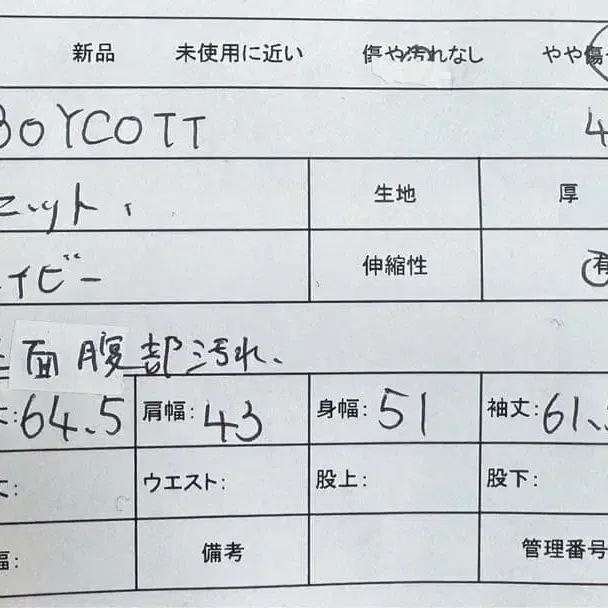 新品 未使用に近い 傷や汚れなし やや傷
BOYCOTT 4
ニット、 生地 厚
イビー 伸縮性 有
面腹部汚れ、
丈:64.5 肩幅:43 身幅:51 袖丈:61.
丈: ウエスト: 股上: 股下:
幅: 備考 管理番号